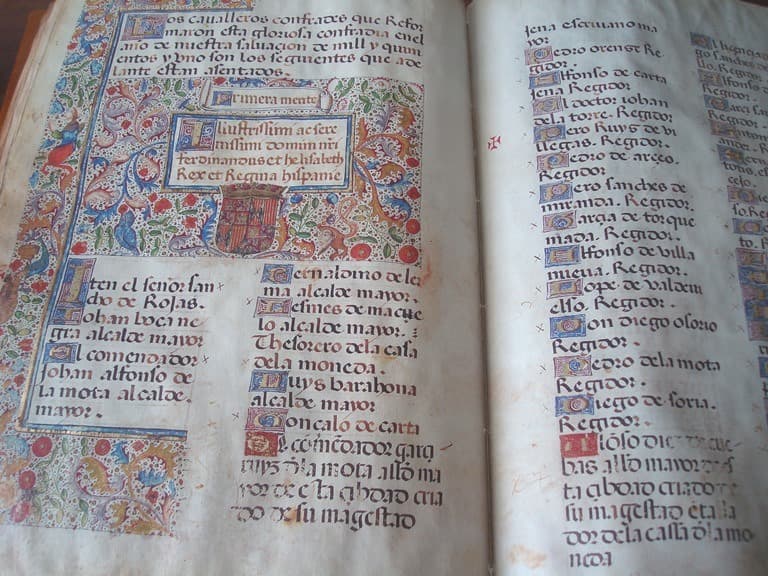 Los cavalleros confrades que Refor
maron esta gloriosa confradia en el
año de nuestra salvacion de mill y quin
ientos y uno son los seguientes que a de
lante estan asentados.
Primeramente
Illustrissimi ac sere
nissimi domini nri
ferdinandus et helisabeth
Rex et Regina hispanie
Iten el señor san
cho de Rojas.
Johan boca ne
gra alcalde mayor
El comendador
Johan alfonso de
la mota alcalde
mayor.
Geronaldimo de ler
ma alcalde mayor.
Jesmes de macue
lo alcalde mayor.
Thesorero de la casa
de la moneda.
Luys barahona
alcalde mayor
Goncalo de carta
El comendador garci
ruys dla mota alld ma
yor de esta cibdad cria
do de su magestad
jena escriuano ma
yor
Pedro orense Re
gidor.
Alfonso de carta
jena Regidor.
El doctor johan
dela torre. Regidor
Pero Ruys de vi
llegas. Regidor.
Pedro de arceo.
Regidor
Pero sanches de
miranda. Regidor.
Garcia de torque
mada. Regidor.
Alfonso de villa
nueua. Regidor.
Lope de valdeui
elso. Regidor
Don diego osorio
Regidor.
Pedro dela mota
Regidor.
Diego de soria.
Regidor.
Alonso die de cue
bas alld mayor de es
ta cibdad criado de
su magestad e talla
dor de la cassa dla mo
neda